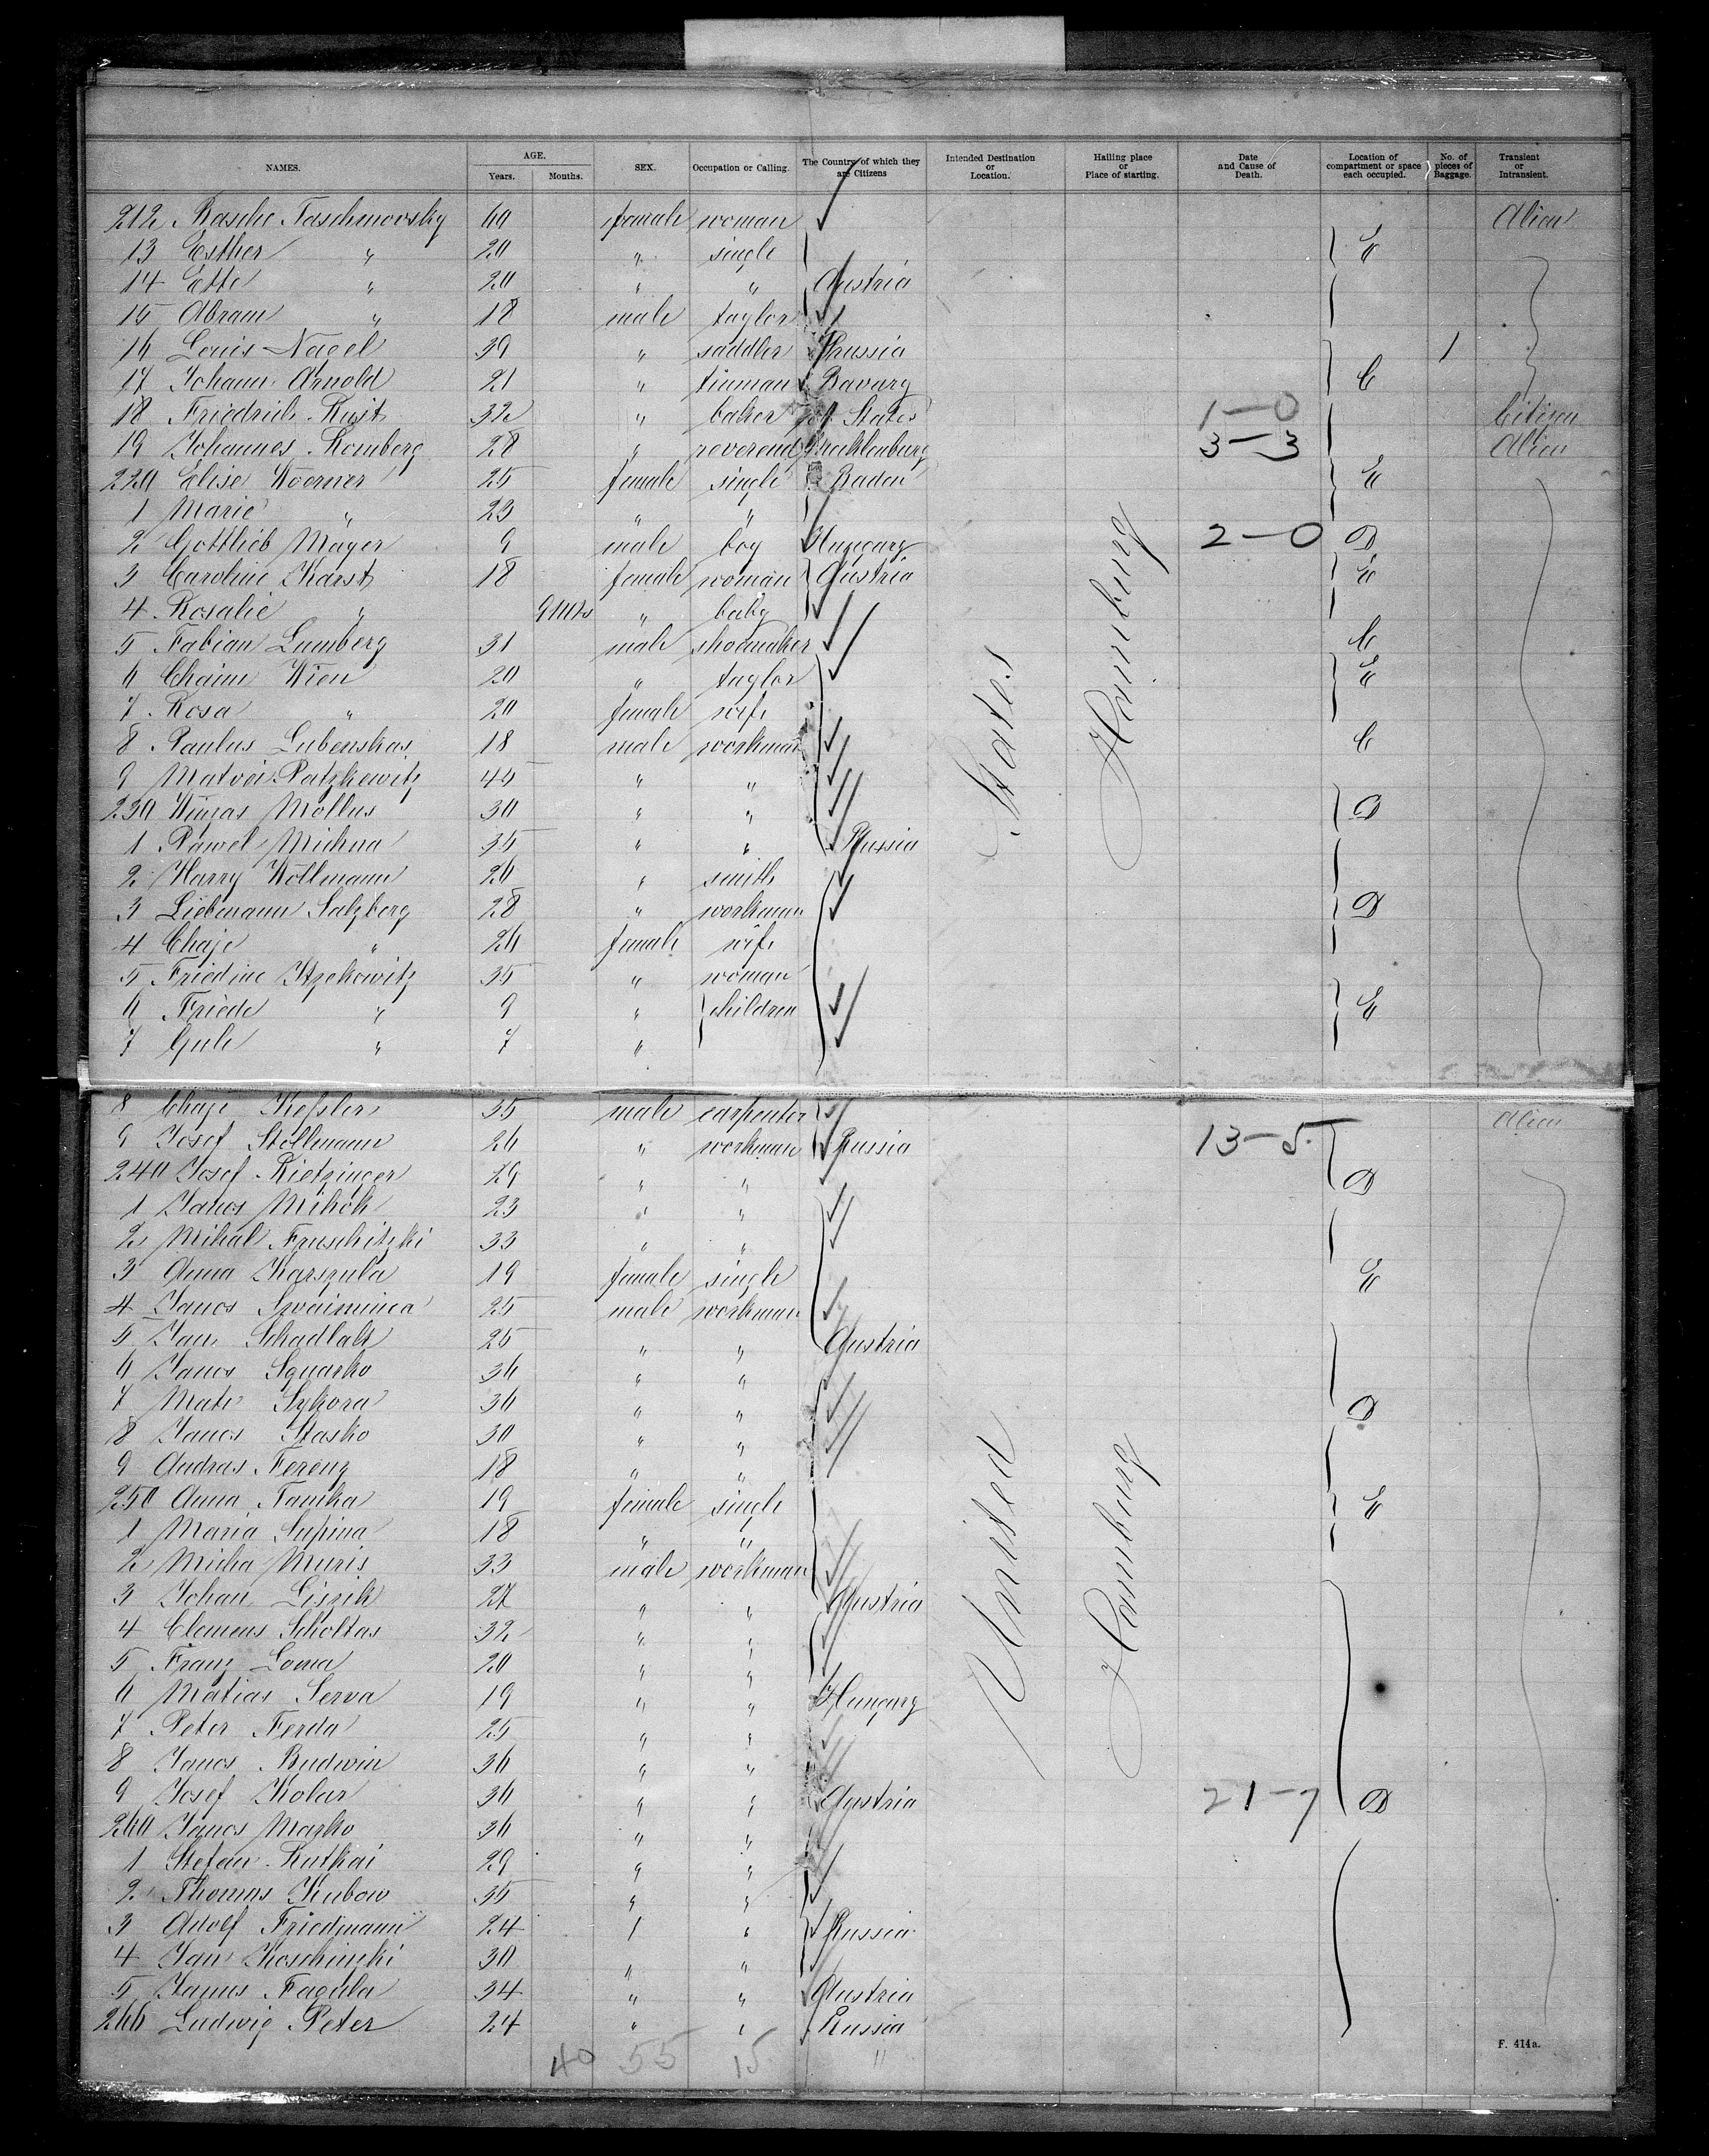 NAMES. AGE. Years. Months. SEX. Occupation or Calling. The Country of which they are Citizens Intended Destination or Location. Hailing place or Place of starting. Date and Cause of Death. Location of compartment or space each occupied. No. of pieces of Baggage. Transient or Intransient.
212 Rasche Taschmovsky 60 female woman Alien
13 Esther " 20 " single E
14 Ette " 20 " " Austria
15 Abram " 18 male taylor
16 Louis Nagel 39 " saddler Prussia 1
17 Johann Arnold 21 " tinman Bavary C
18 Friedrich Rust 32 " baker States 1-0 Citizen
19 Johannes Romberg 28 " reverend Mecklenburg 3-3 Alien
220 Elise Woerner 25 female single Baden E
1 Marie " 23 " "
2 Gottlieb Mayer 9 male boy Hungary 2-0 D
3 Caroline Karst 18 female woman Austria E
4 Rosalie " 9 mts " baby
5 Fabian Lumberg 31 male shoemaker C
6 Chaim Wien 20 " taylor E
7 Rosa " 20 female wife
8 Paulus Lubenskas 18 male workman C
9 Matvei Patzkewitz 45 " "
230 Wingas Mollus 30 " " D
1 Pawel Michna 35 " " Russia
2 Harry Wollmann 26 " smith
3 Liebmann Salzberg 28 " workman D
4 Chaje " 26 female wife
5 Friedine Itzekowitz 35 " woman
6 Friede " 9 " children E
7 Gule " 7 "
8 Chaje Kessler 35 male carpenter Alien
9 Josef Stollmann 26 " workman Russia 13-5
240 Josef Rietzinger 29 " " D
1 Janos Mihok 23 " "
2 Mihal Fruschitzki 33 " "
3 Anna Karszula 19 female single E
4 Janos Swaiminca 25 male workman
5 Jan Schadlak 25 " " Austria
6 Janos Squarko 36 " "
7 Mate Sykora 36 " " D
8 Janos Stasko 30 " "
9 Andras Ferenz 18 " "
250 Anna Tamka 19 female single E
1 Maria Supina 18 " "
2 Micha Muris 33 male workman
3 Johan Liszik 27 " " Austria
4 Clemens Scholtas 32 " "
5 Franz Loma 20 " "
6 Matias Serva 19 " " Hungary
7 Peter Ferda 25 " "
8 Janos Budwin 36 " "
9 Josef Kolar 36 " " Austria 21-7 D
260 Janos Mazko 36 " "
1 Stefan Rutkai 29 " "
2 Thomas Kubow 35 " "
3 Adolf Friedmann 24 " " Russia
4 Jan Koschinski 30 " "
5 Janos Fagula 34 " " Austria
266 Ludwig Peter 24 " " Russia
40 55 15 "
United States
Hamburg
Hamburg
F. 414a.